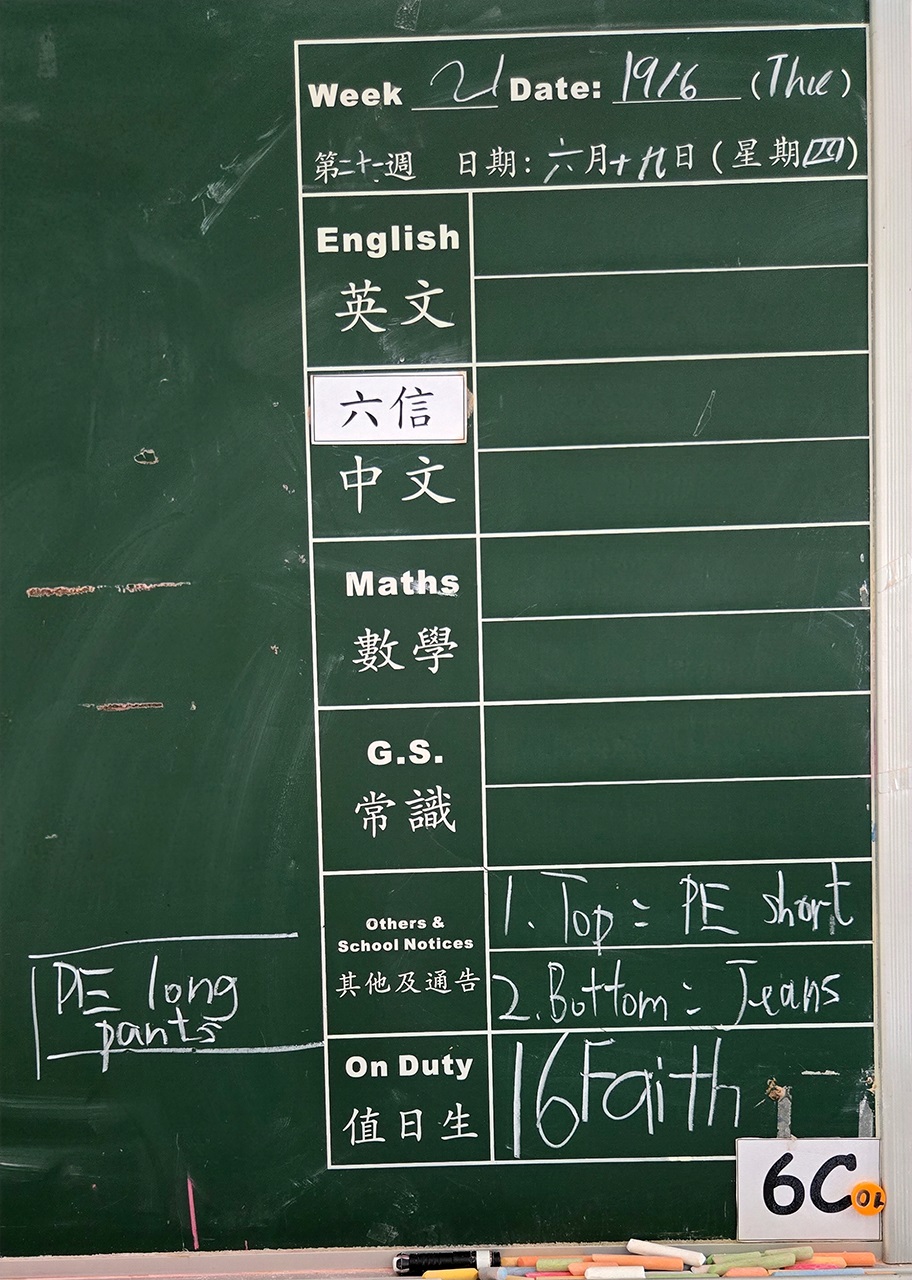 Week 21 Date: 19/6 (Thu)
第二十一週 日期:六月十九日(星期四)
English
英文
六信
中文
Maths
數學
G.S.
常識
Others &
School Notices
其他及通告
1. Top : PE short
2. Bottom : Jeans
PE long
pants
On Duty
值日生
16 Faith
6C